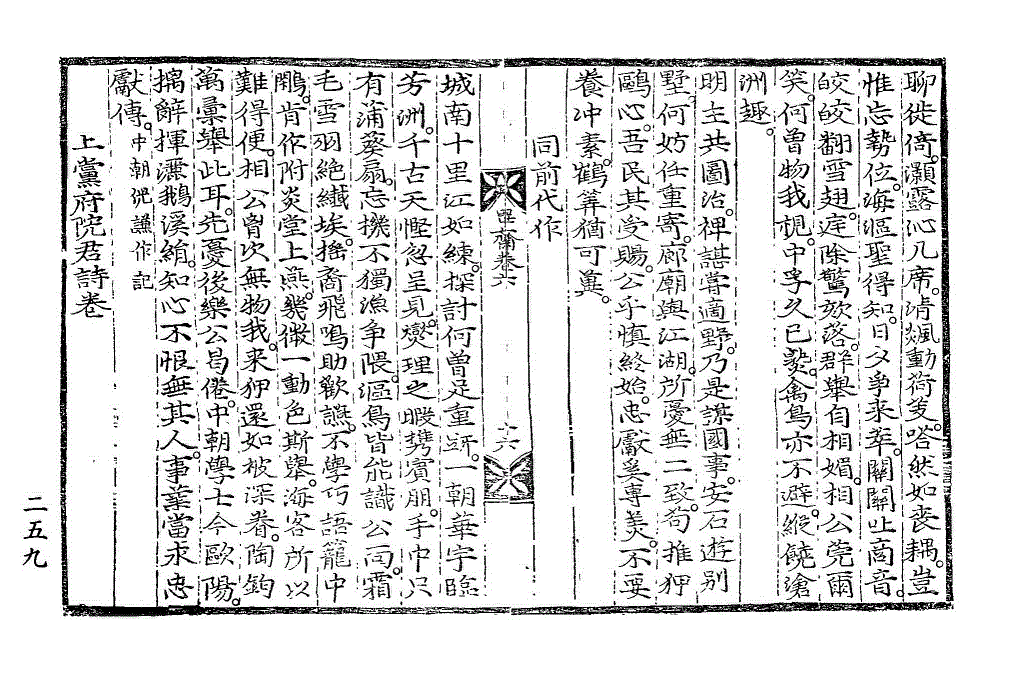 聊徙倚。灝露沁几席。淸颷動荷芰。嗒然如喪耦。豈
惟忘勢位。海漚聖得知。日夕爭來萃。關關吐高音。
皎皎翻雪翅。庭除驚欬落。群擧自相媚。相公莞爾
笑。何曾物我視。中孚久已孚。禽鳥亦不避。縱饒滄
洲趣。
明主共圖治。裨諶嘗適野。乃是謀國事。安石遊别
墅。何妨任重寄。廊廟與江湖。所憂無二致。苟推狎
鷗心。吾民其受賜。公乎愼終始。忠獻奚專美。不要
養冲素。鶴筭猶可冀。
同前代作
耻齋卷六
十六
城南十里江如練。探討何曾足重趼。一朝華宇臨
芳洲。千古天慳忽呈見。爕理之暇携賓朋。手中只
有蒲葵扇。忘機不獨漁爭隈。漚鳥皆能識公面。霜
毛雪羽絶纖埃。搖裔飛鳴助歡讌。不學巧語籠中
鵰。肯作附炎堂上燕。幾微一動色斯擧。海客所以
難得便。相公胷次無物我。来狎還如被深眷。陶鈞
萬彙擧此耳。先憂後樂公曷倦。中朝學士今歐陽。
摛辭揮灑鵝溪絹。知心不恨無其人。事業當求忠
獻傳。中朝倪謙作記
上黨府院君詩卷
二五九